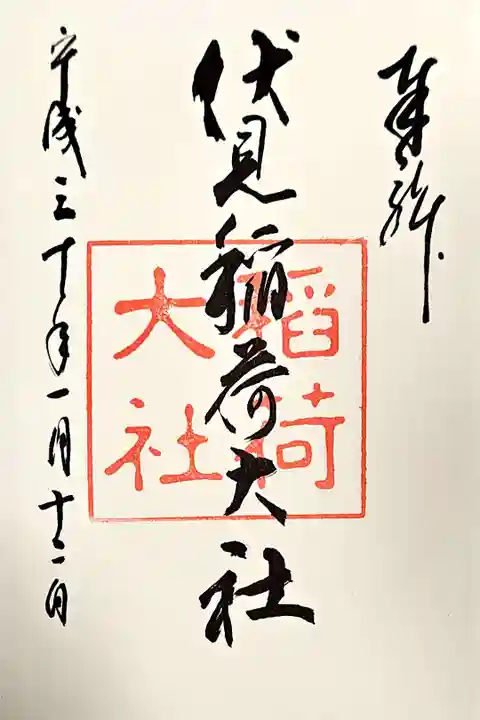 奉拝
伏見稲荷大社
稲荷
大社
平成三十年一月十二日